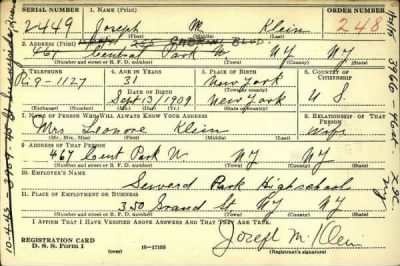 SERIAL NUMBER 1. NAME (Print) ORDER NUMBER
2449 Joseph M. Klein 248
(First) (Middle) (Last)
2. ADDRESS (Print)
467 Central Park W NY NY
(Number and street or R. F. D. number) (Town) (County) (State)
3. TELEPHONE 4. AGE IN YEARS 5. PLACE OF BIRTH 6. COUNTRY OF CITIZENSHIP
Ri 9-1127 31 New York
DATE OF BIRTH (Town or county)
Sept 13 1909 New York U S.
(Exchange) (Number) (Mo.) (Day) (Yr.) (State or country)
7. NAME OF PERSON WHO WILL ALWAYS KNOW YOUR ADDRESS 8. RELATIONSHIP OF THAT PERSON
Mrs. Leonore Klein Wife
(Mr., Mrs., Miss) (First) (Middle) (Last)
9. ADDRESS OF THAT PERSON
467 Cent Park W. NY NY
(Number and street or R. F. D. number) (Town) (County) (State)
10. EMPLOYER'S NAME
Seward Park High school
11. PLACE OF EMPLOYMENT OR BUSINESS
350 Grand St NY NY
(Number and street or R. F. D. number) (Town) (County) (State)
I AFFIRM THAT I HAVE VERIFIED ABOVE ANSWERS AND THAT THEY ARE TRUE.
REGISTRATION CARD
D. S. S. Form 1 (over) 16-17105 Joseph M Klein
(Registrant's signature)